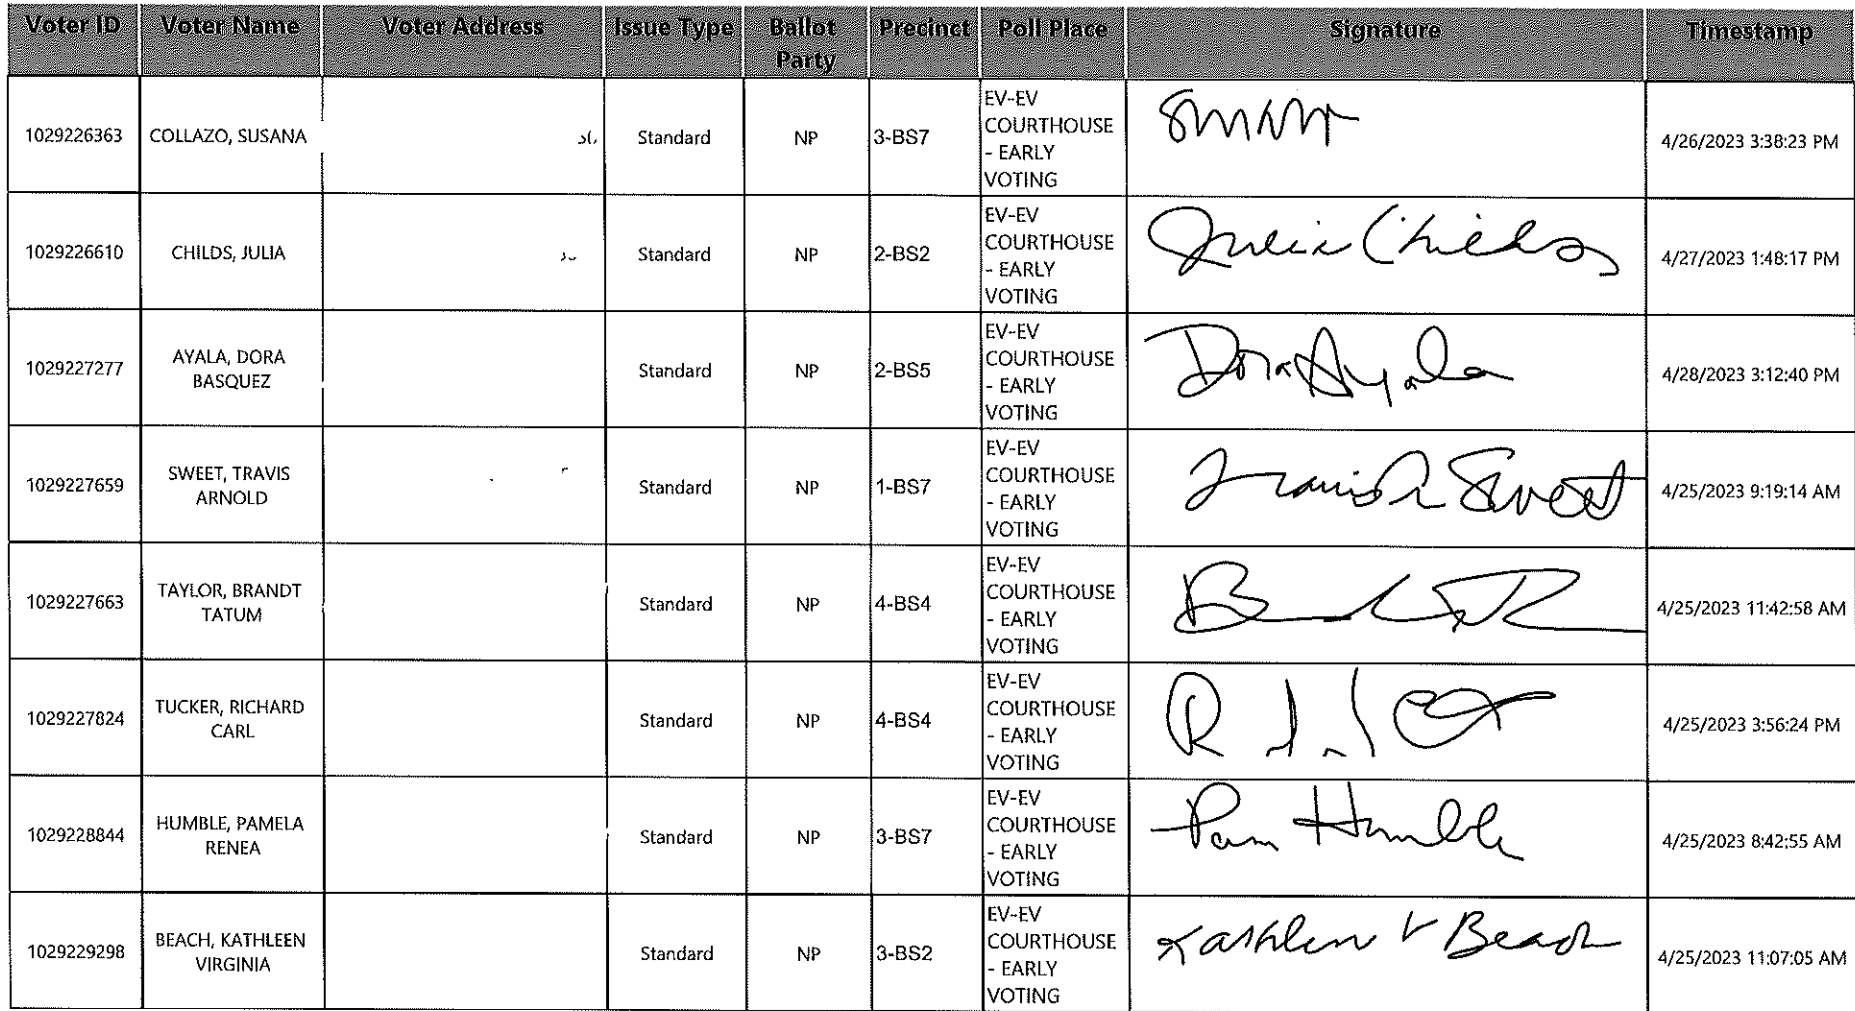 Voter ID Voter Name Voter Address Issue Type Ballot Party Precinct Poll Place Signature Timestamp
1029226363 COLLAZO, SUSANA Standard NP 3-BS7 EV-EV COURTHOUSE - EARLY VOTING 4/26/2023 3:38:23 PM
1029226610 CHILDS, JULIA Standard NP 2-BS2 EV-EV COURTHOUSE - EARLY VOTING Julia Childs 4/27/2023 1:48:17 PM
1029227277 AYALA, DORA BASQUEZ Standard NP 2-BS5 EV-EV COURTHOUSE - EARLY VOTING Dora Ayala 4/28/2023 3:12:40 PM
1029227659 SWEET, TRAVIS ARNOLD Standard NP 1-BS7 EV-EV COURTHOUSE - EARLY VOTING Travis A Sweet 4/25/2023 9:19:14 AM
1029227663 TAYLOR, BRANDT TATUM Standard NP 4-BS4 EV-EV COURTHOUSE - EARLY VOTING 4/25/2023 11:42:58 AM
1029227824 TUCKER, RICHARD CARL Standard NP 4-BS4 EV-EV COURTHOUSE - EARLY VOTING 4/25/2023 3:56:24 PM
1029228844 HUMBLE, PAMELA RENEA Standard NP 3-BS7 EV-EV COURTHOUSE - EARLY VOTING Pam Humble 4/25/2023 8:42:55 AM
1029229298 BEACH, KATHLEEN VIRGINIA Standard NP 3-BS2 EV-EV COURTHOUSE - EARLY VOTING Kathleen V Beach 4/25/2023 11:07:05 AM